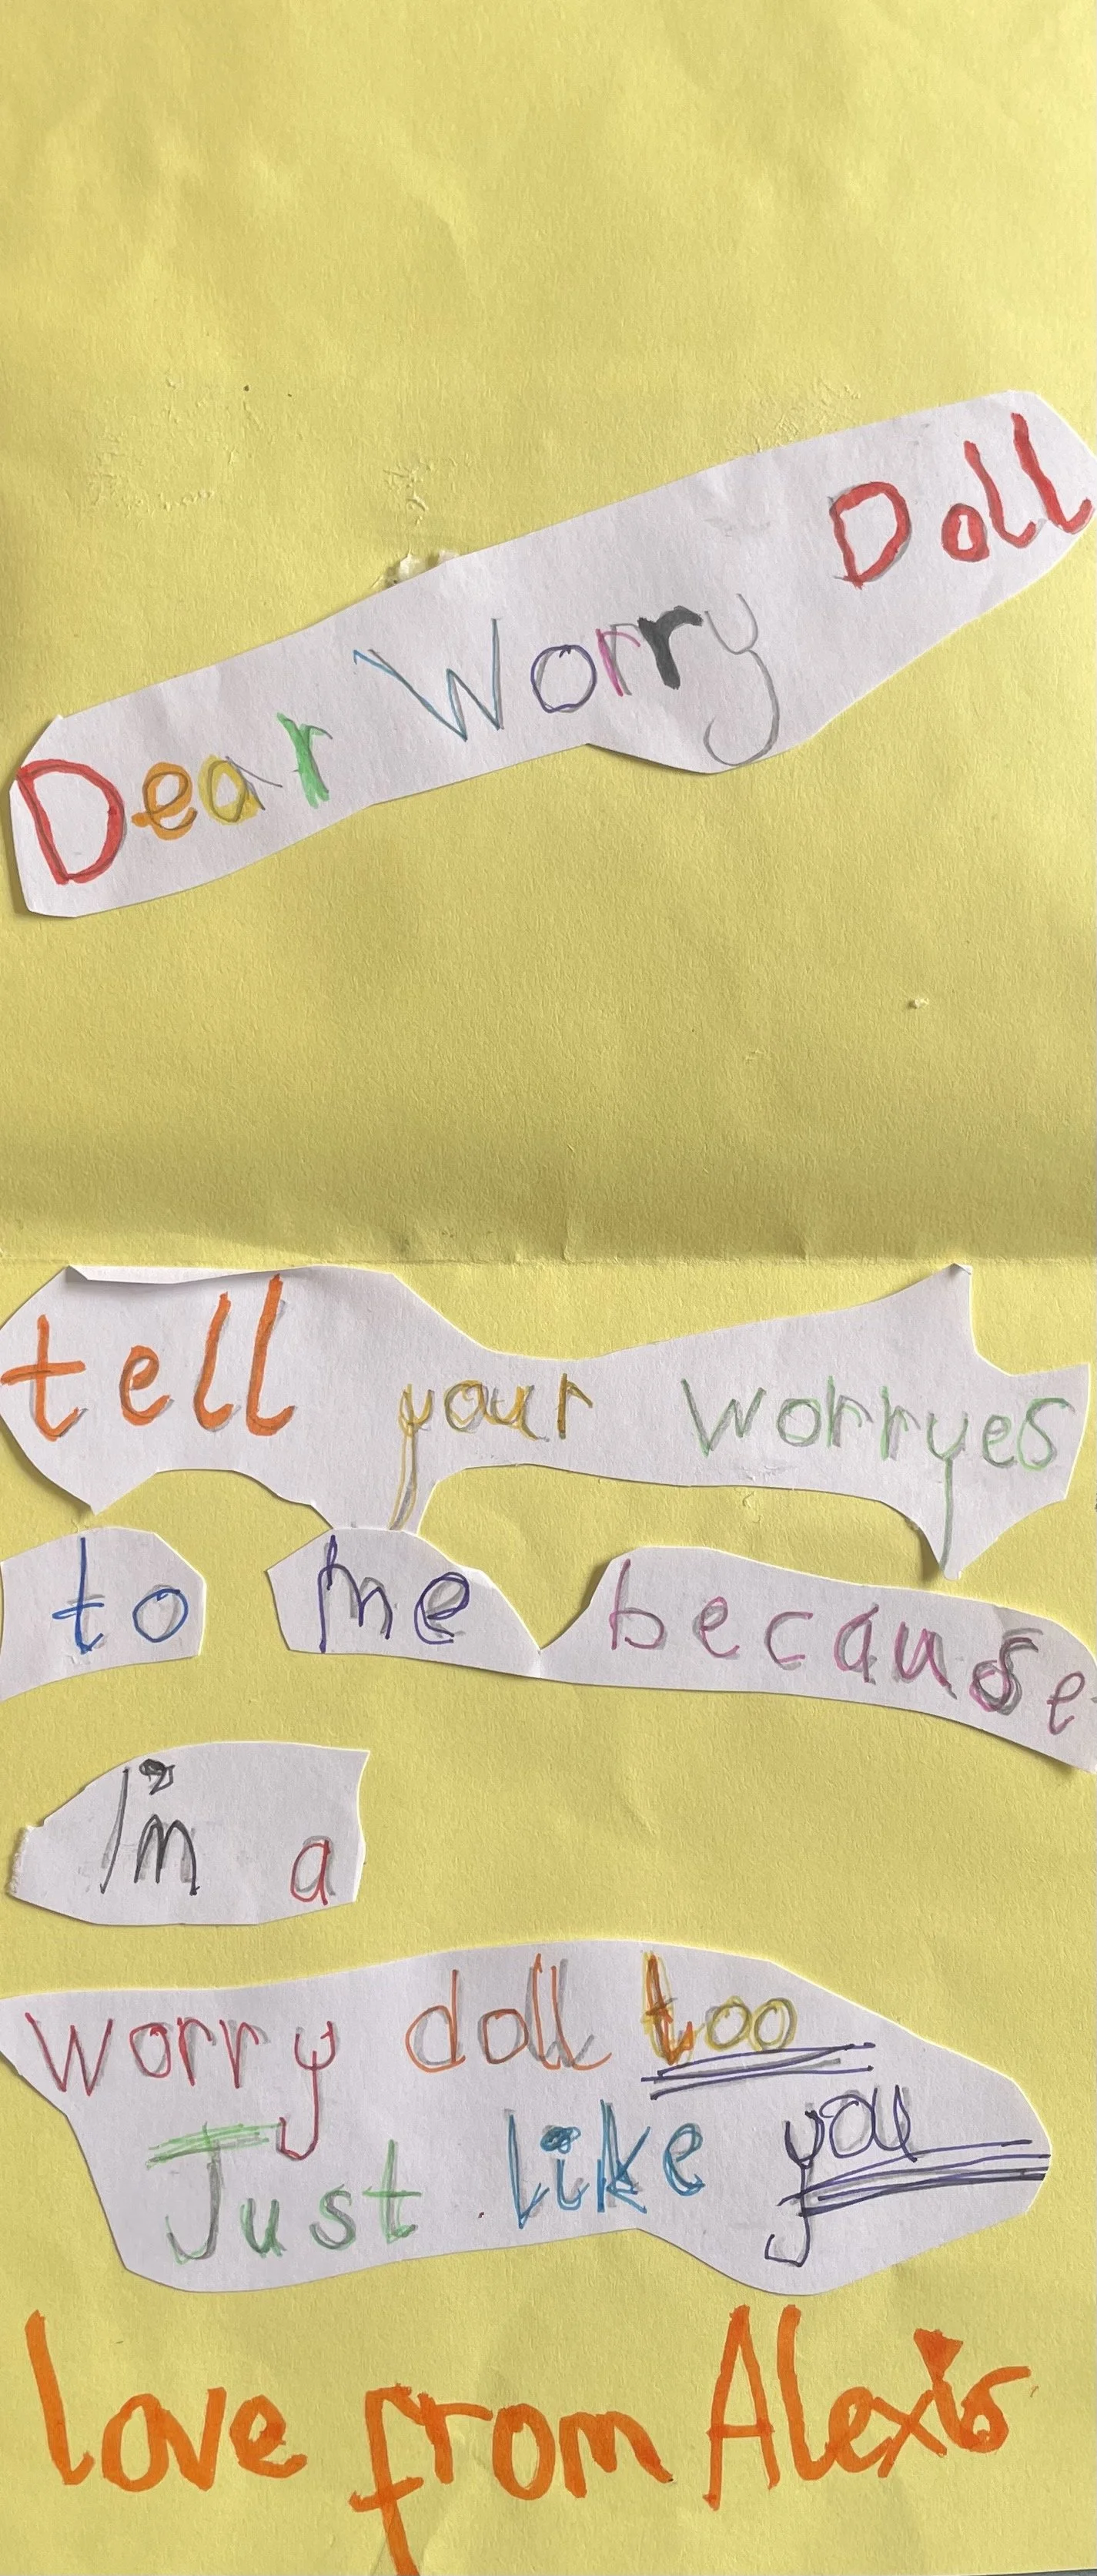 Dear Worry Doll
tell your worryes
to me because
I'm a
worry doll too
Just like you
love from Alexis